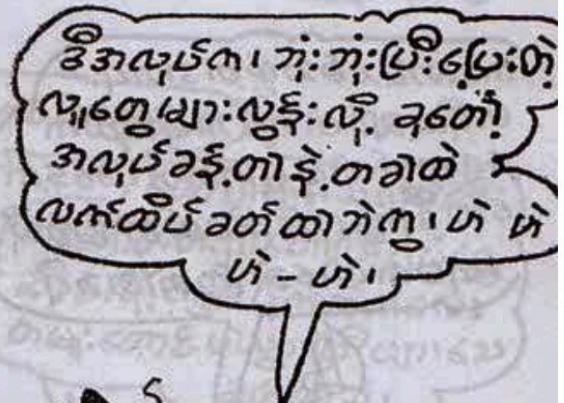 ဒီအလုပ်က၊ ဘုံးဘုံးပြီးပြေးတဲ့
လူတွေများလွန်းလို့ ခုတော့
အလုပ်ခန့်တာနဲ့တခါထဲ
လက်ထိပ်ခတ်ထာဘဲကွ၊ ဟဲ ဟဲ
ဟဲ - ဟဲ၊